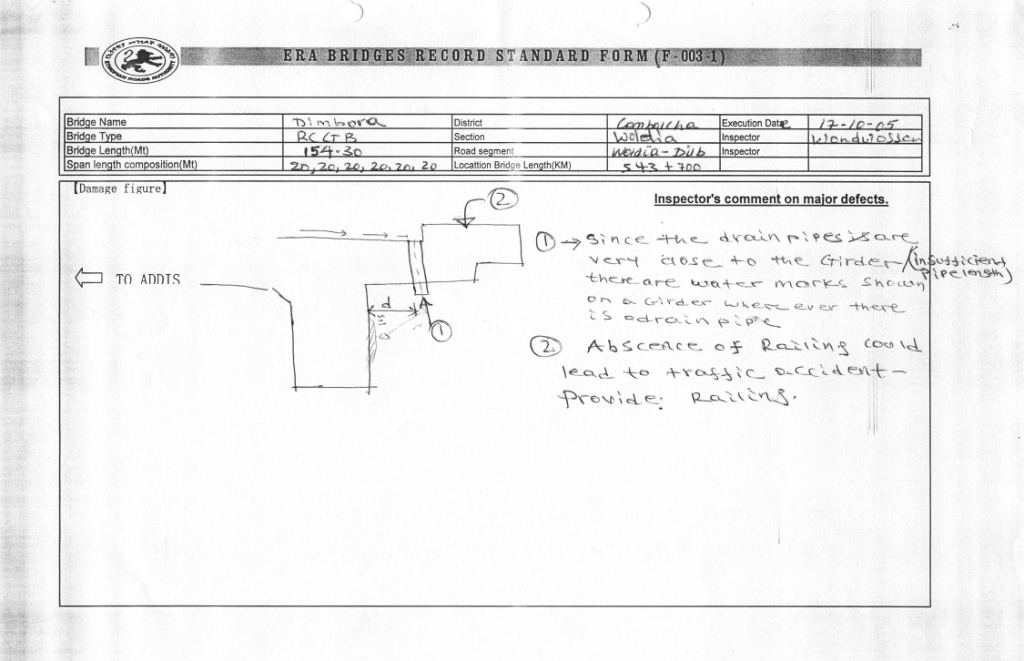 ERA BRIDGES RECORD STANDARD FORM (F-003-1)
Bridge Name Dimbora District Combolcha Execution Date 17-10-05
Bridge Type RCGTB Section Woldia Inspector Wondwossen
Bridge Length(Mt) 154.30 Road segment Weldia-Dub Inspector
Span length composition(Mt) 20, 20, 20, 20, 20, 20 Locattion Bridge Length(KM) 543+700
[Damage figure]
Inspector's comment on major defects.
2
TO ADDIS
d
A
1
1 → Since the drain pipes is are
very close to the Girder/(insufficient
pipe length)
there are water marks shown
on a Girder where ever there
is a drain pipe
2 Abscence of Railing could
lead to traffic accident-
Provide: Railing.